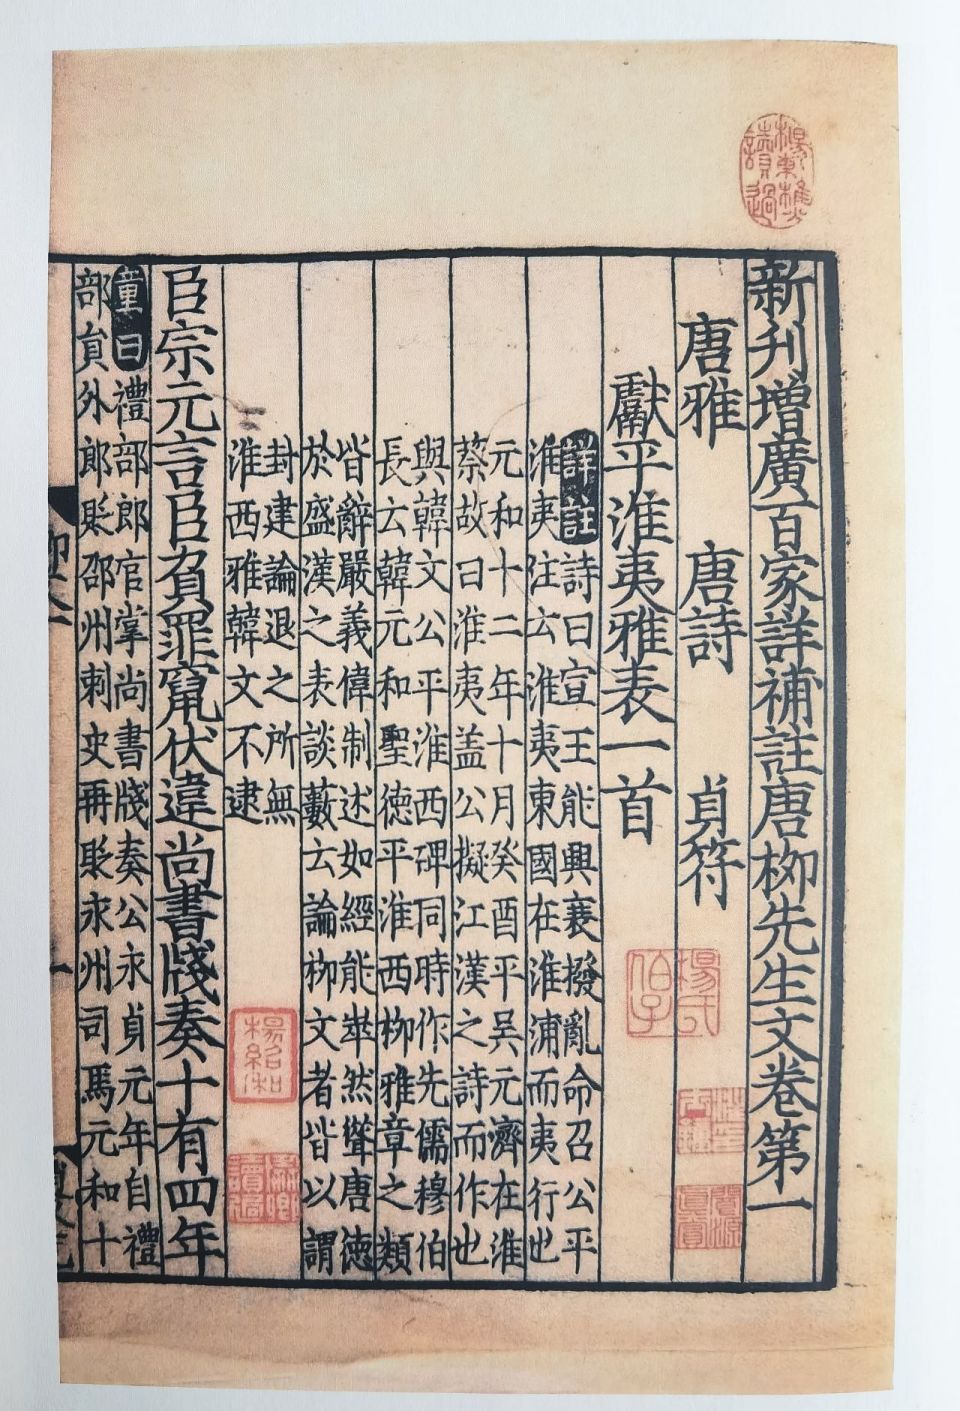 新刊增廣百家詳補註唐柳先生文卷第一
唐雅 唐詩 貞符
獻平淮夷雅表一首
詳註詩曰宣王能興衰撥亂命召公平
淮夷注云淮夷東國在淮浦而夷行也
元和十二年十月癸酉平吳元濟在淮
蔡故曰淮夷盖公擬江漢之詩而作也
與韓文公平淮西碑同時作先儒穆伯
長云韓元和聖德平淮西柳雅章之類
皆辭嚴義偉制述如經能崒然聳唐德
於盛漢之表談藪云論柳文者皆以謂
封建論退之所無
淮西雅韓文不逮
臣宗元言臣負罪竄伏違尚書牋奏十有四年
童曰禮部郎官掌尚書牋奏公永貞元年自禮
部貟外郎貶邵州刺史再貶永州司馬元和十
楊東樵讀過
楊氏伯子
楊紹和